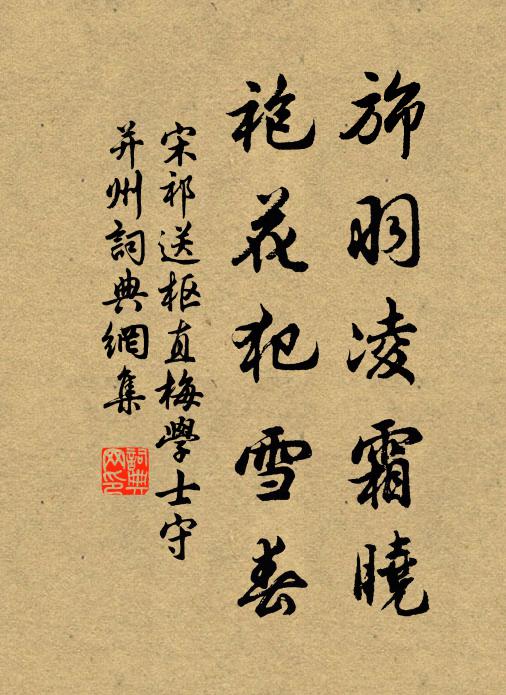 旆羽凌霜曉
袍花犯雪春
宋祁送枢直梅學士守
并州詞典網集
詞典网印